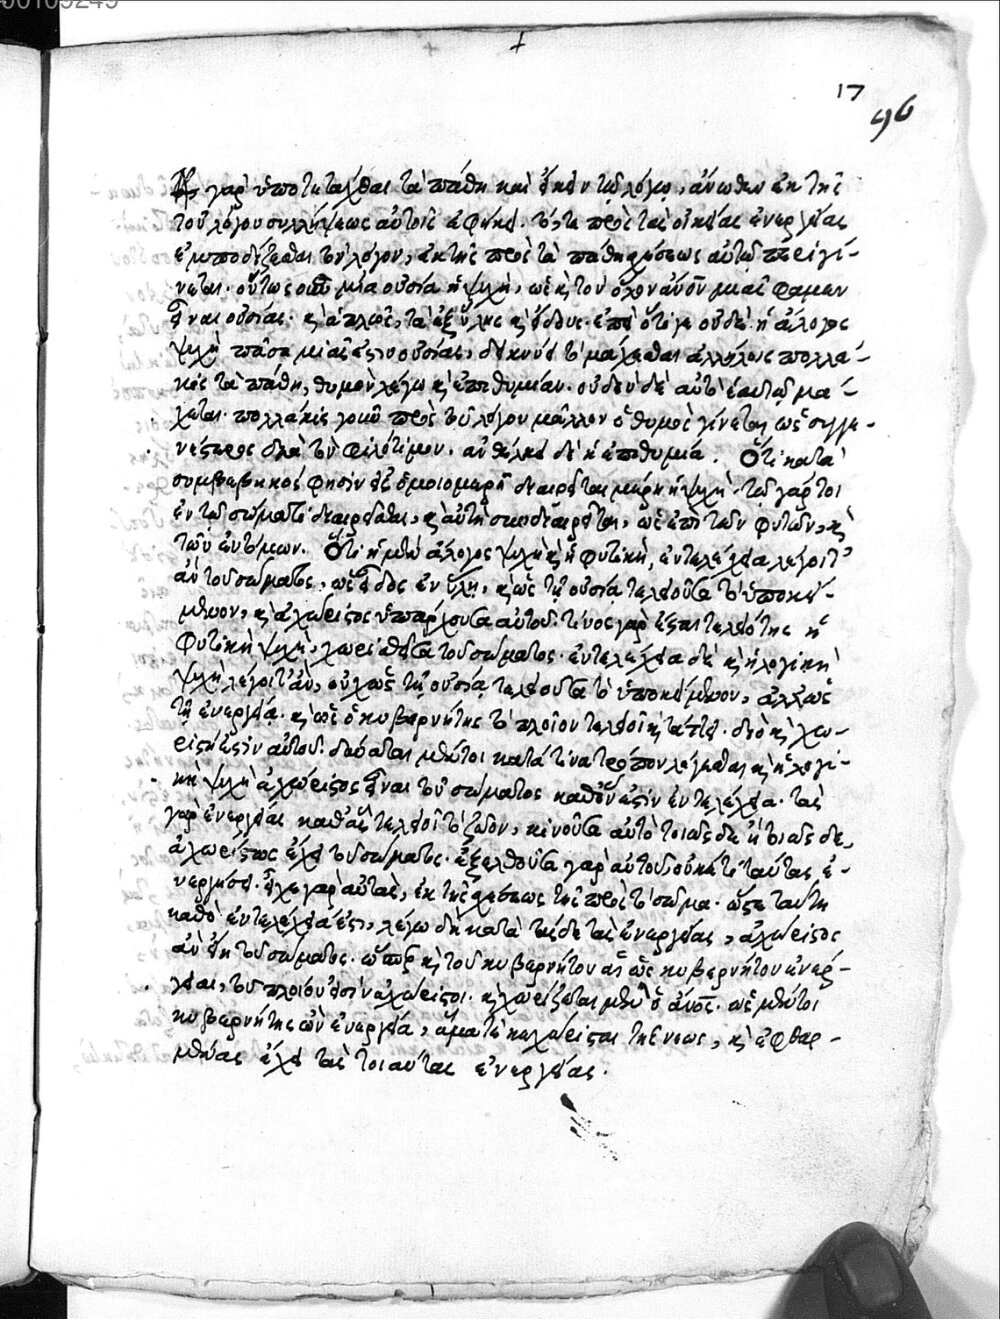 00109249
17
96
γὰρ ὑποτετάχθαι τὰ πάθη καὶ εἴκειν τῷ λόγῳ, ἄνωθεν ἐκ τῆς
τοῦ λόγου συλλήψεως αὐτοῖς ἀφῖκται. τὸ τε πρὸς τὰς οἰκείας ἐνεργείας
ἐμποδίζεσθαι τὸν λόγον, ἐκ τῆς πρὸς τὰ πάθη σχέσεως αὐτῷ περιγί-
νεται. οὕτως οὖν μία οὐσία ἡ ψυχή, ὡς καὶ τὸν ὅλον ἄνθρωπον μιᾶς φαμεν
εἶναι οὐσίας. καὶ ἁπλῶς, τὰ ἐξ ὕλης καὶ εἴδους. ἐπεὶ ὅτι γε οὐδὲ ἡ ἄλογος
ψυχὴ πᾶσα μιᾶς ἐστιν οὐσίας, δείκνυσι τὸ μάχεσθαι ἀλλήλοις πολλά-
κις τὰ πάθη, θυμὸν λέγω καὶ ἐπιθυμίαν. οὐδὲν δὲ αὐτὸ ἑαυτῷ μά-
χεται. πολλάκις γοῦν πρὸς τοῦ λόγου μᾶλλον ὁ θυμὸς γίνεται, ὡς συγγε-
νέστερος διὰ τὸ φιλότιμον. ἀνθέλκει δὲ ἡ ἐπιθυμία. Ὅτι κατὰ
συμβεβηκός φησιν ἐξ ὁμοιομερῆ διαιρεῖται μέρη ἡ ψυχή. τῷ γάρ τοι
ἐν τῷ σώματι διαιρεῖσθαι, καὶ αὐτὴ συνδιαιρεῖται, ὡς ἐπὶ τῶν φυτῶν, καὶ
τῶν ἐντόμων. Ὅτι ἡ μὲν ἄλογος ψυχὴ καὶ ἡ φυτικὴ, ἐντελέχεια λέγοιτ'
ἂν τοῦ σώματος, ὡς εἶδος ἐν ὕλῃ, καὶ ὡς τῇ οὐσίᾳ τελειοῦσα τὸ ὑποκεί-
μενον, καὶ ἀχώριστος ὑπάρχουσα αὐτοῦ. τίνος γὰρ ἔσται τελειότης ἡ
φυτικὴ ψυχὴ, χωρισθεῖσα τοῦ σώματος. ἐντελέχεια δὲ καὶ ἡ λογικὴ
ψυχὴ λέγοιτ' ἄν, οὐχ ὡς τῇ οὐσίᾳ τελειοῦσα τὸ ὑποκείμενον, ἀλλ' ὡς
τῇ ἐνεργείᾳ. καὶ ὡς ὁ κυβερνήτης τὸ πλοῖον τελειοῖ καὶ τάττει. διὸ καὶ χω-
ριστή ἐστιν αὐτοῦ. δύναται μέντοι κατά τινα τρόπον λέγεσθαι καὶ ἡ λογι-
κὴ ψυχὴ ἀχώριστος εἶναι τοῦ σώματος καθ' ὅν ἐστιν ἐντελέχεια. τὰς
γὰρ ἐνεργείας καθ' ἃς τελειοῖ τὸ ζῷον, κινοῦσα αὐτὸ τοιῶσδε ἢ τοιῶσδε,
ἀχωρίστως ἔχει τοῦ σώματος. ἐξελθοῦσα γὰρ αὐτοῦ, οὐκέτι ταύτας ἐ-
νεργήσει. ἔχει γὰρ αὐτὰς, ἐκ τῆς σχέσεως τῆς πρὸς τὸ σῶμα. ὥστε ταύτῃ
καθὸ ἐντελέχειά ἐστι, λέγω δὴ κατὰ τάσδε τὰς ἐνεργείας, ἀχώριστος
ἂν εἴη τοῦ σώματος. ὥσπερ καὶ τοῦ κυβερνήτου αἱ ὡς κυβερνήτου ἐνέρ-
γειαι, τοῦ πλοίου εἰσὶν ἀχώριστοι. καὶ χωρίζεται μὲν ὁ ἄνθρωπος. ὡς μέντοι
κυβερνήτης ὢν ἐνεργείᾳ, ἅμα τε κἀχώριστος τῆς νεὼς, καὶ ἐφθαρ-
μένας ἔχει τὰς τοιαύτας ἐνεργείας.